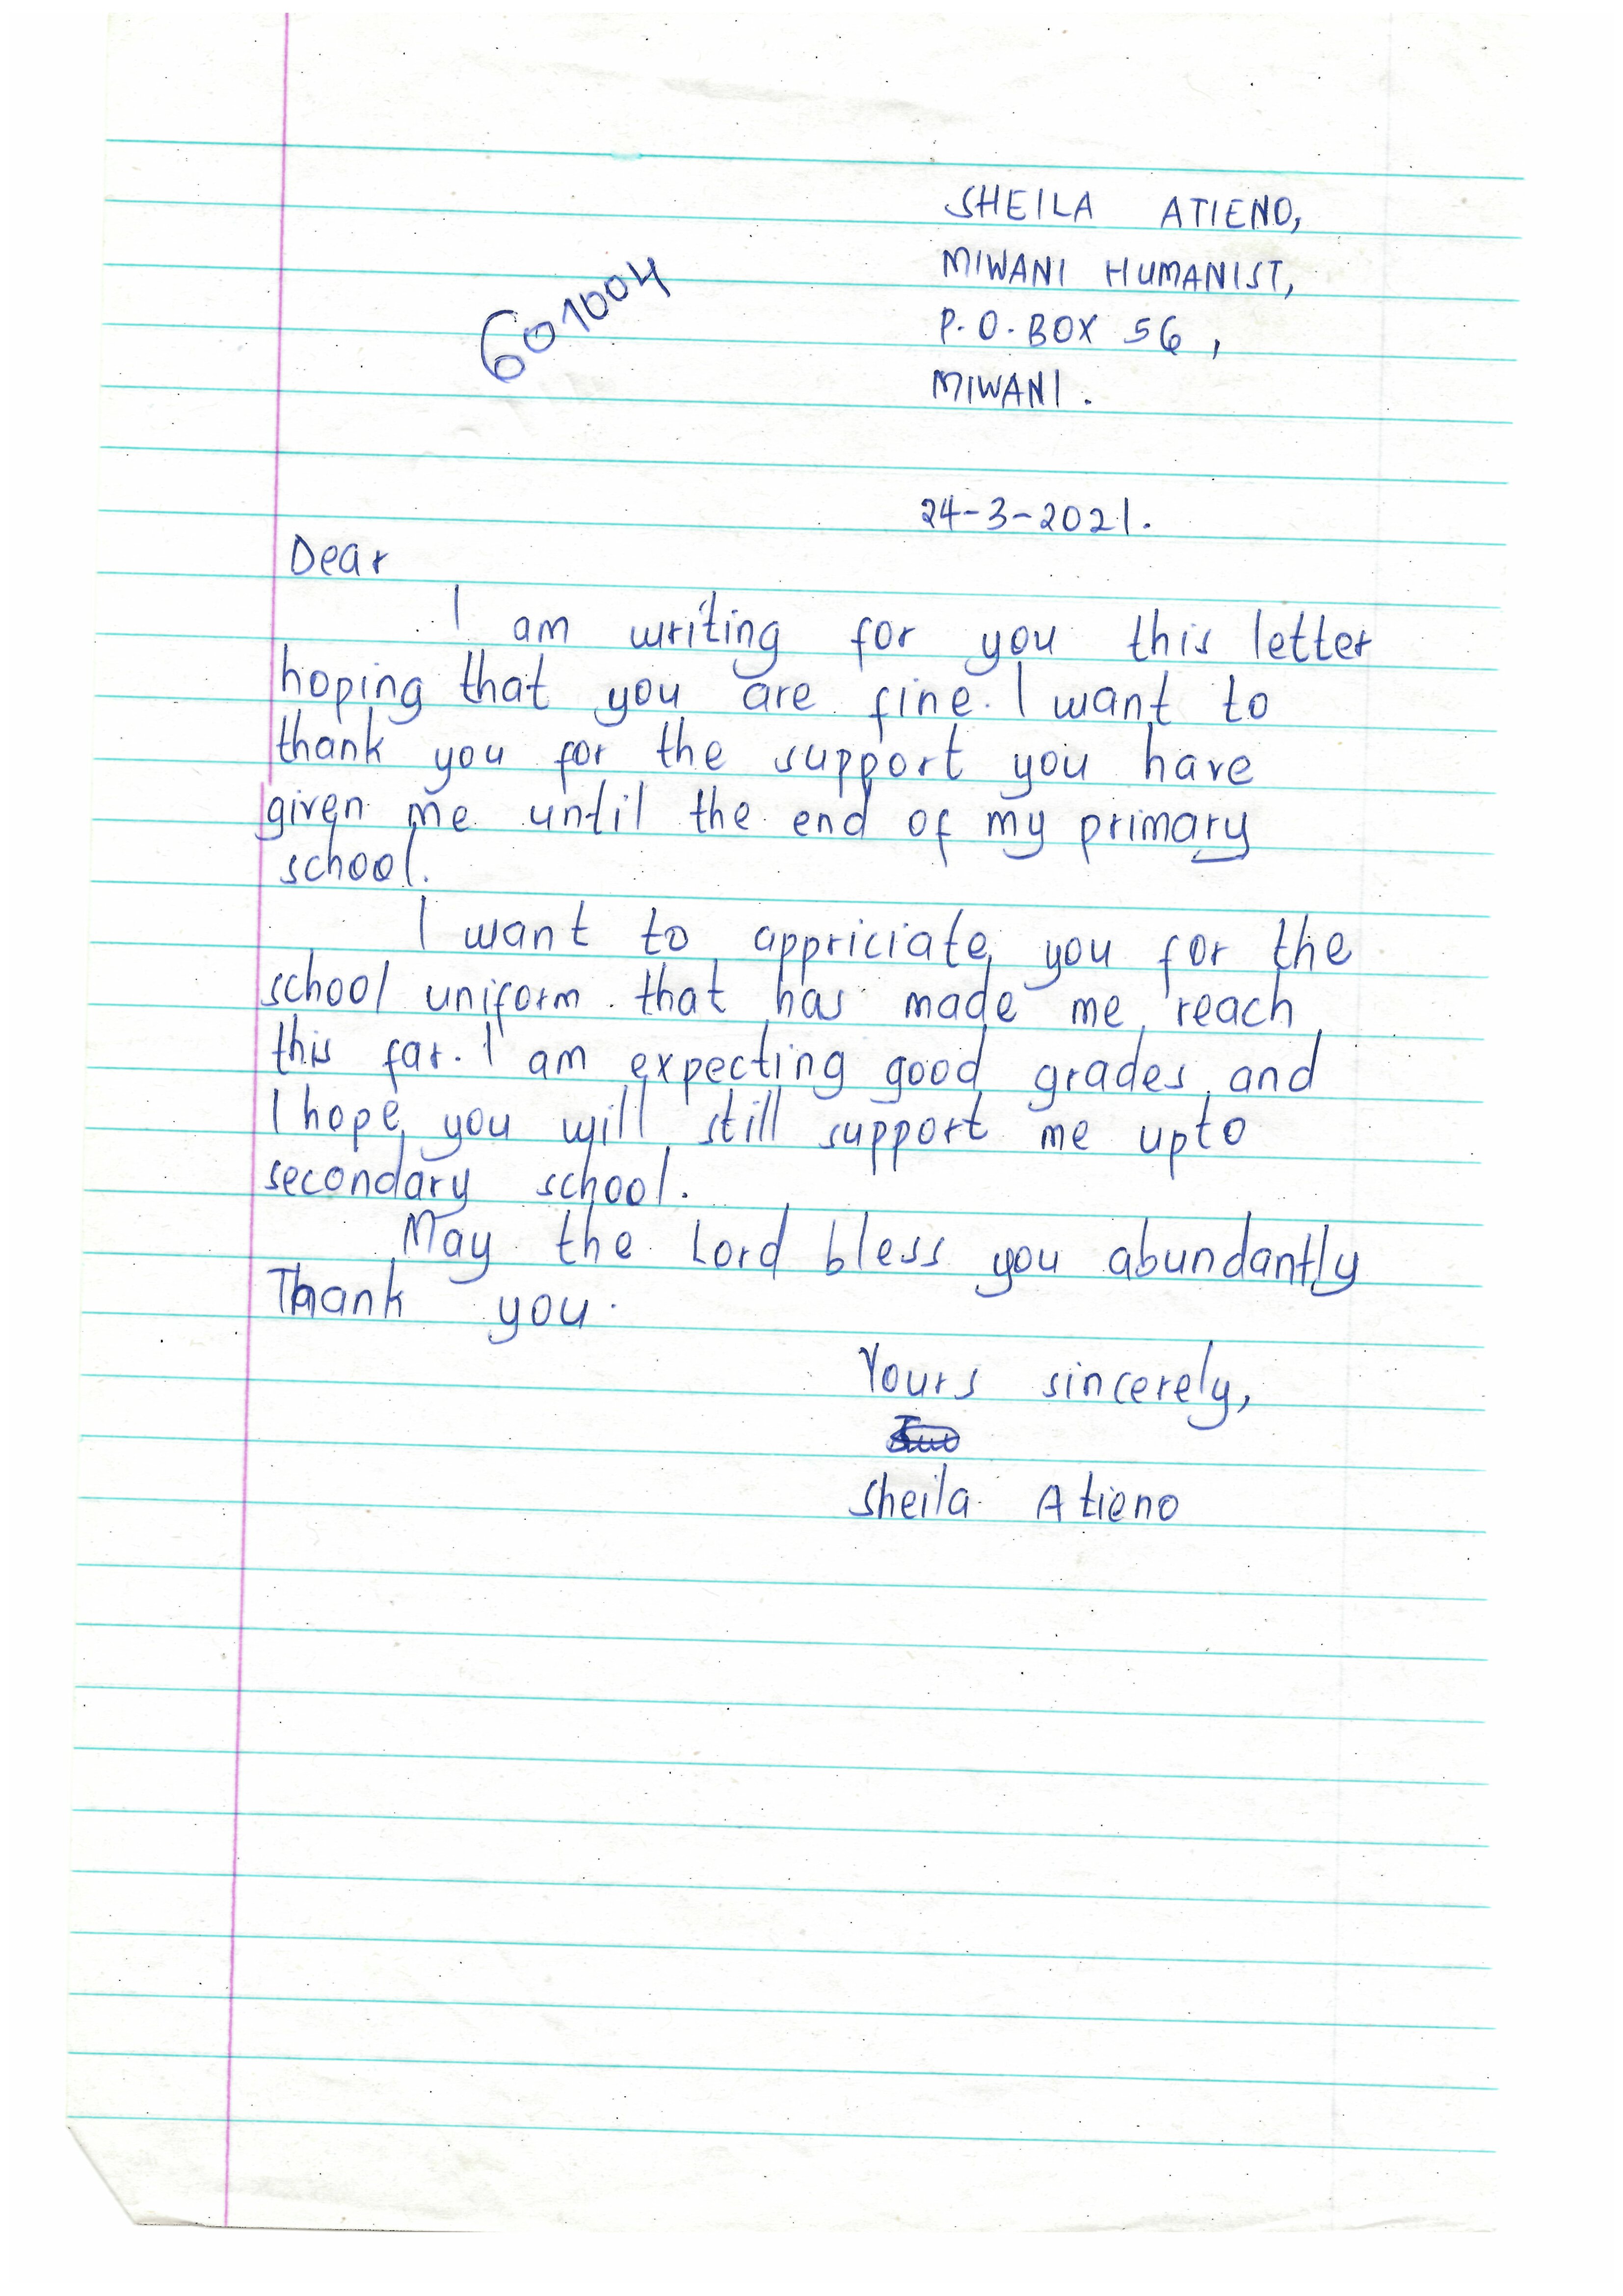 SHEILA ATIENO,
MIWANI HUMANIST,
601004
P.O.BOX 56,
MIWANI.
24-3-2021.
Dear
I am writing for you this letter
hoping that you are fine. I want to
thank you for the support you have
given me until the end of my primary
school.
I want to appriciate you for the
school uniform that has made me reach
this far. I am expecting good grades and
I hope you will still support me upto
secondary school.
May the Lord bless you abundantly
Thank you.
Yours sincerely,
Sheila Atieno